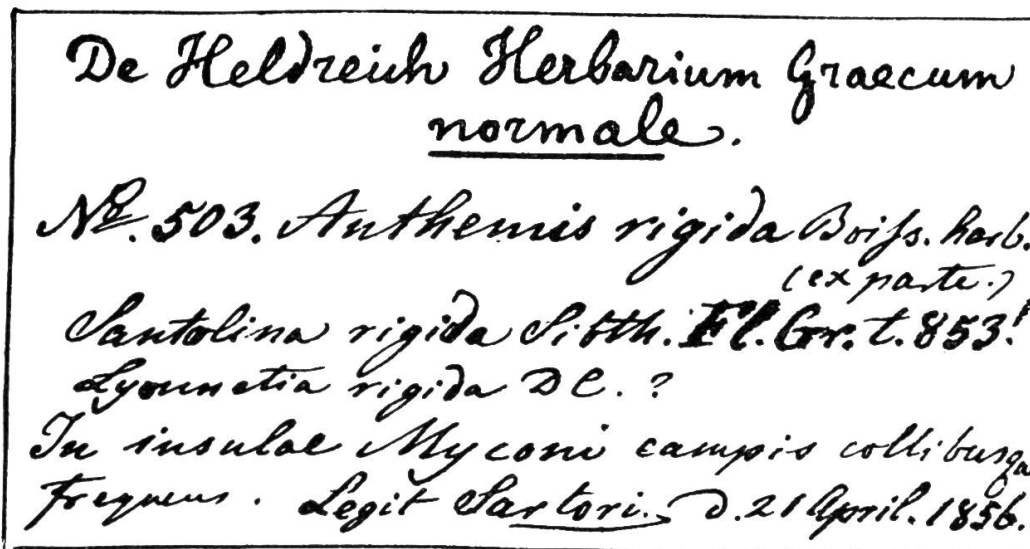 De Heldreich Herbarium Graecum
normale.
No. 503. Anthemis rigida Boiss. herb.
(ex parte.)
Santolina rigida Sibth. Fl. Gr. t. 853!
Lyonnetia rigida DC. ?
In insulae Myconi campis collibusqu
frequens. Legit Sartori. d. 21 April. 1856.